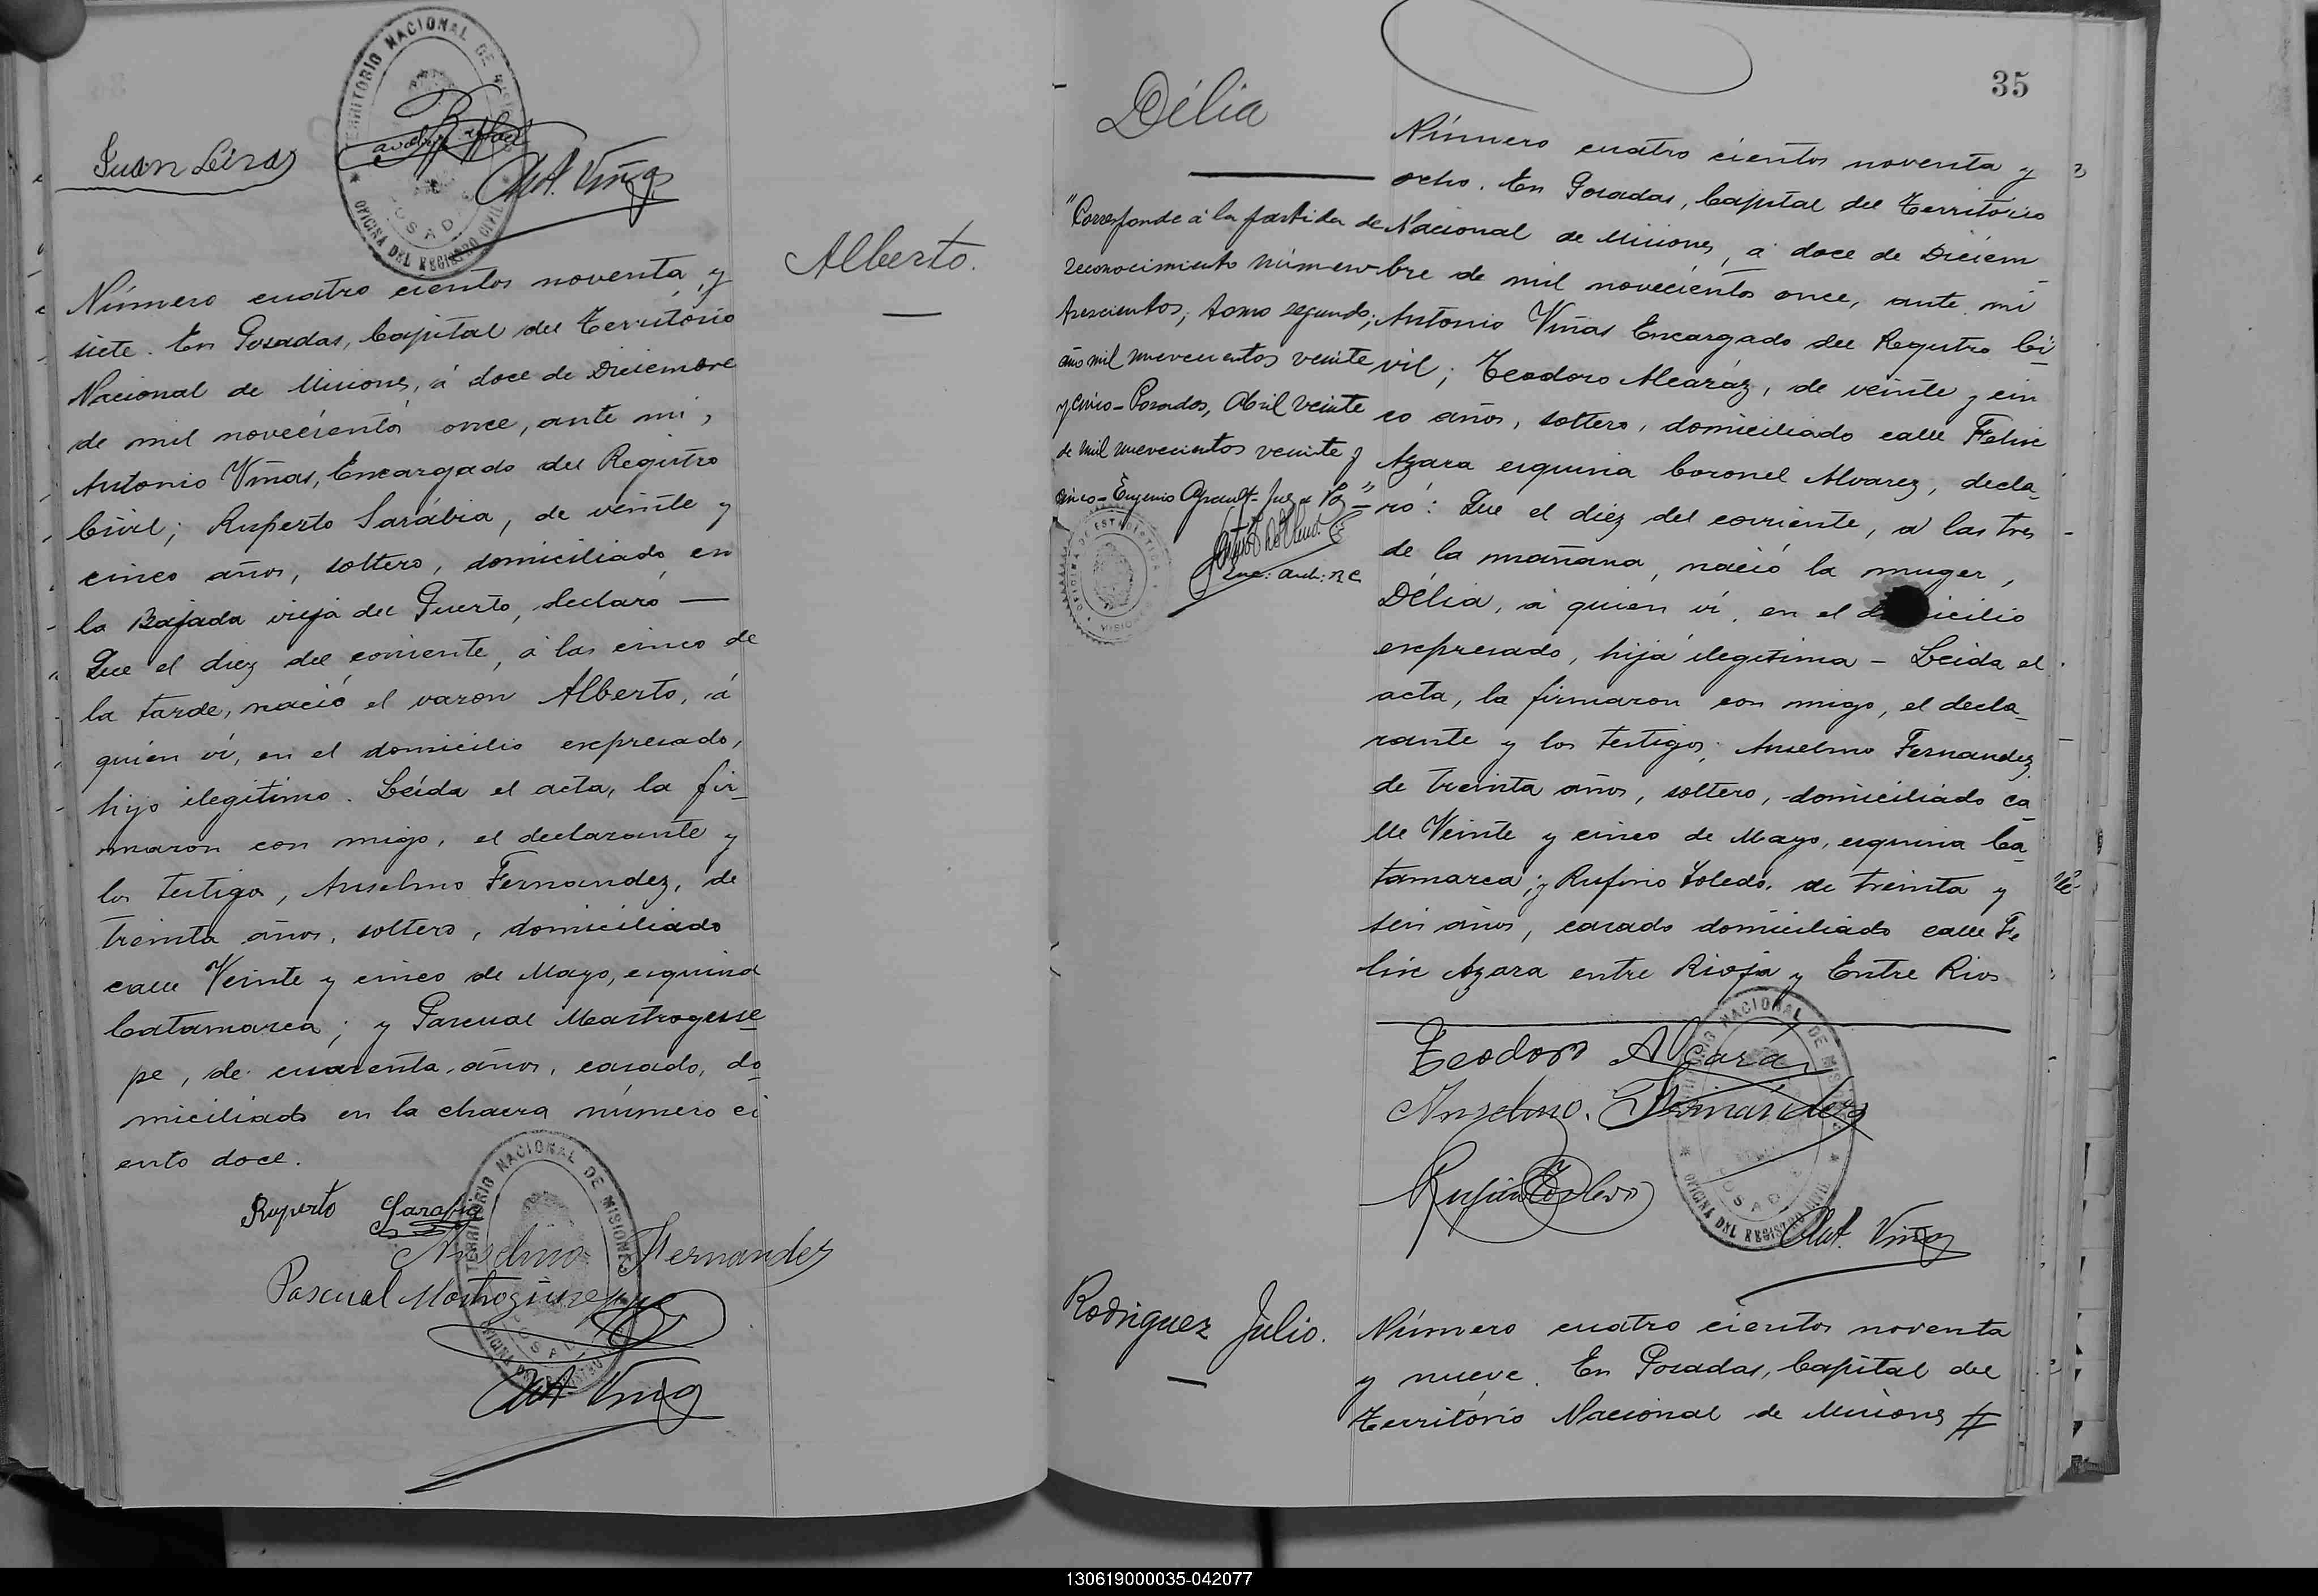 TERRITORIO NACIONAL DE MISIONES
OFICINA DEL REGISTRO CIVIL
POSADAS
Ant. Viñas
Alberto.
Número cuatro cientos noventa y
siete. En Posadas, Capital del Território
Nacional de Misiones, á doce de Diciembre
de mil novecientos once, ante mi,
Antonio Viñas, Encargado del Registro
Civil; Ruperto Sarábia, de veinte y
cinco años, soltero, domiciliado en
la Bajada vieja del Puerto, declaró —
Que el diez del corriente, á las cinco de
la tarde, nació el varon Alberto, á
quien ví, en el domicilio expresado,
hijo ilegítimo. Leída el acta, la fir_
maron con migo, el declarante y
los testigos, Anselmo Fernandez, de
treinta años, soltero, domiciliado
calle Veinte y cinco de Mayo, esquina
Catamarca; y Pascual Mastrogesse_
pe, de cuarenta años, casado, do_
miciliado en la chacra número ci_
ento doce.
Ruperto Sarabia
Anselmo Fernandez
Pascual Mastrogiuseppe
TERRITORIO NACIONAL DE MISIONES
OFICINA DEL REGISTRO CIVIL
POSADAS
Ant. Viñas
35
Délia
"Corresponde á la partida de
reconocimiento número
trescientos, tomo segundo,
año mil nuevecientos veinte
y cinco - Posadas, Abril veinte
de mil nuevecientos veinte y
cinco - Eugenio Juez de Paz"
Enc: Arch: R C
OFICINA DE ESTADISTICA
MISIONES
Número cuatro cientos noventa y
ocho. En Posadas, Capital del Território
Nacional de Misiones, á doce de Diciem_
bre de mil novecientos once, ante mi
Antonio Viñas Encargado del Registro Ci_
vil; Teodoro Alcaráz, de veinte y cin
co años, soltero, domiciliado calle Felix
Azara esquina Coronel Alvarez, decla_
ró: Que el diez del corriente, á las tres
de la mañana, nació la muger,
Délia, á quien ví, en el domicilio
expresado, hija ilegítima - Leida el
acta, la firmaron con migo, el decla_
rante y los testigos; Anselmo Fernandez
de treinta años, soltero, domiciliado ca_
lle Veinte y cinco de Mayo, esquina Ca_
tamarca; y Rufino Toledo, de treinta y
seis años, casado domiciliado calle Fe_
lix Azara entre Rioja y Entre Rios
Teodoro Alcaráz
Anselmo. Fernández
Rufino Toledo
TERRITORIO NACIONAL DE MISIONES
OFICINA DEL REGISTRO CIVIL
POSADAS
Ant. Viñas
Rodriguez Julio.
Número cuatro cientos noventa
y nueve. En Posadas, Capital del
Território Nacional de Misiones #
130619000035-042077